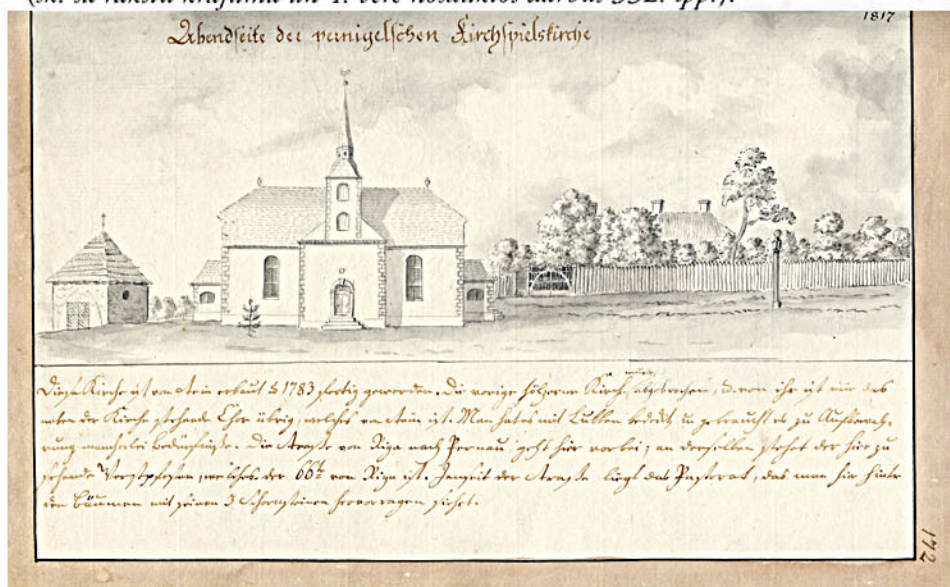 (sk. šā raksta krājuma un 1. vērē nosauktos
1817
Abendseite der pernigelschen Kirchspielskirche
Diese Kirche ist von Stein erbaut & 1783 fertig geworden. Die vorige hölzerne Kirche abgebrochen, & von ihr ist nur das
neben der Kirche stehende Chor übrig welches von Stein ist. Man hat es mit Lubben bedeckt u gebraucht es zu Aufbewah-
rung mancherlei Bedürfnisse. Die Strasse von Riga nach Pernau geht hier vorbei; an derselben stehet der hier zu
sehende Werstpfosten, welches der 66te von Riga ist. Jenseit der Strasse liegt das Pastorat, das man hier hinter
den Bäumen mit seinen 3 Schornsteinen hervorragen siehet.
172